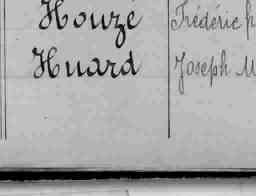 Houzé Frédéric
Huard Joseph M